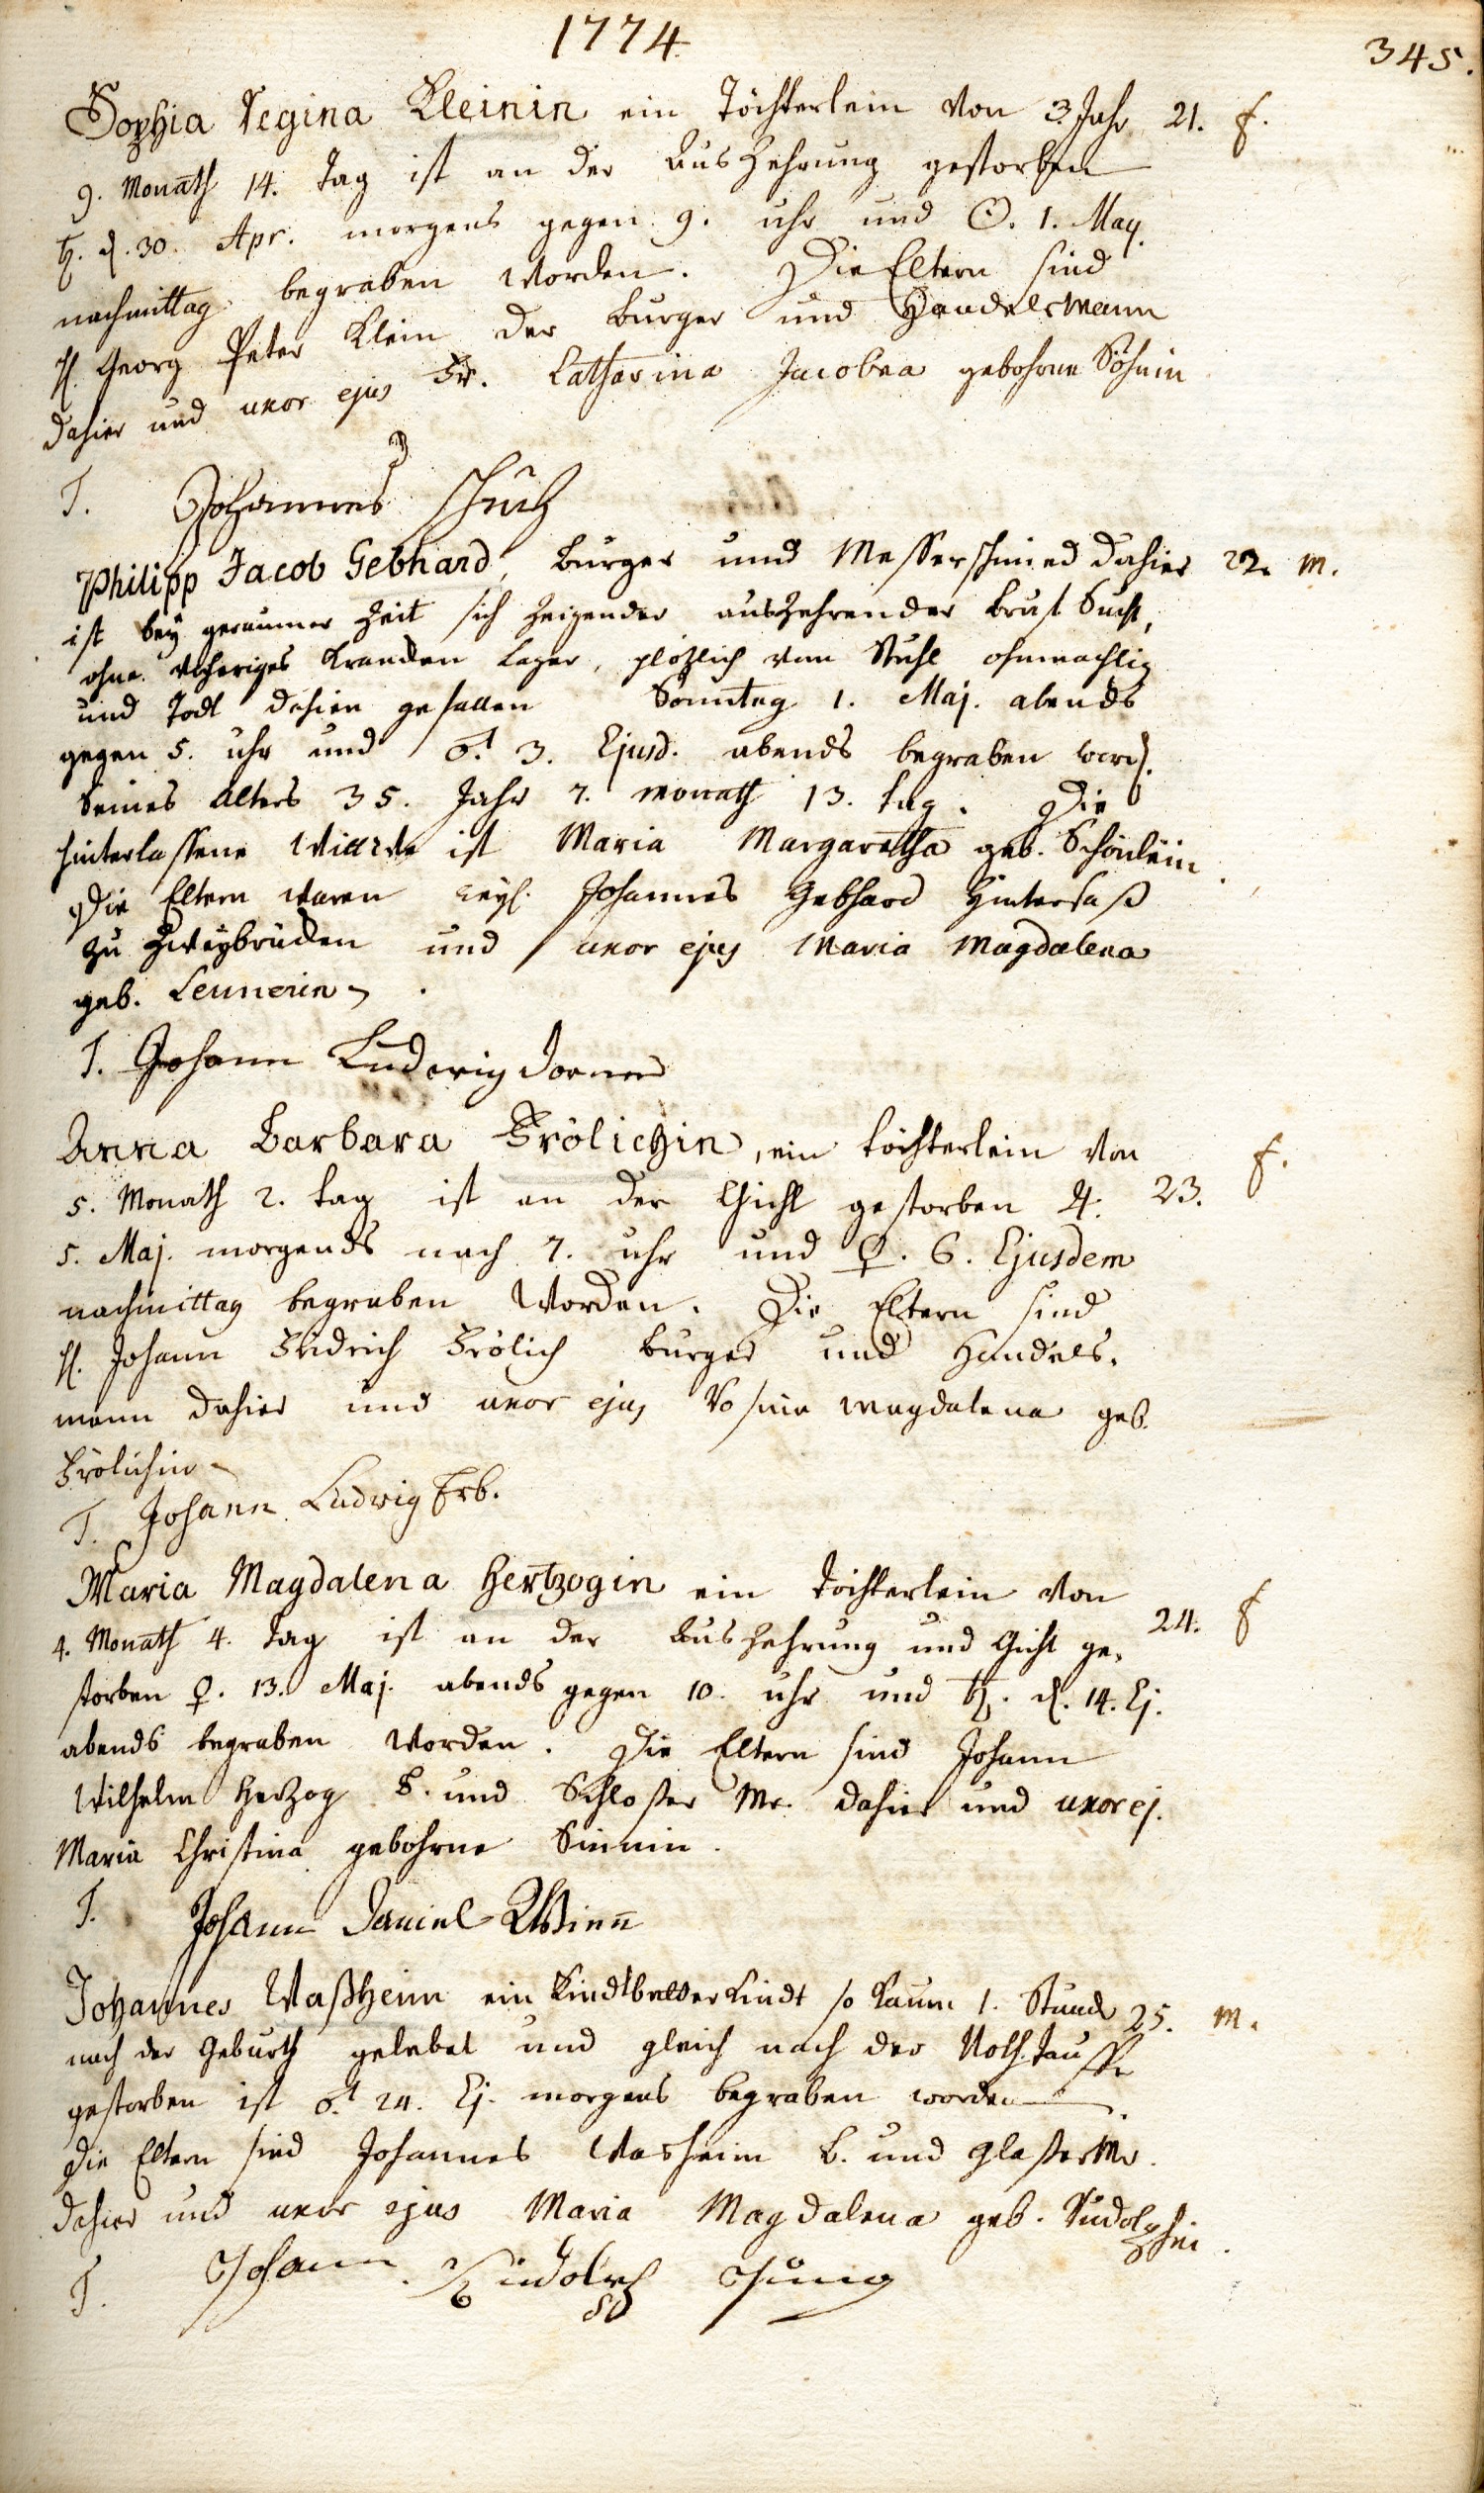 1774
345.
Sophia Regina Kleinin ein Töchterlein von 3 Jahr 21. f.
9. Monath 14. Tag ist an der Auszehrung gestorben
♄. d. 30. Apr. morgens gegen 9. uhr und ☉. 1. May.
nachmittag begraben worden. Die Eltern sind
H. Georg Peter Klein der Burger und Handelsmann
dahier und uxor ejus Fr. Catharina Jacobea gebohrne Söhnin
T. Johannes
Philipp Jacob Gebhard, Burger und Messerschmied dahier 22. m.
ist bey geraumer Zeit sich zeigender auszehrender Brust Sucht,
ohne vorheriges Krancken Lager, plözlich vom Stuhl ohnmachtig
und Todt dahien gefallen Sonntag 1. Maj. abends
gegen 5. uhr und ♂. 3. Ejusd. abends begraben word.
Seines Alters 35. Jahr 7. monath 13. tag. Die
hinterlassene Wittwe ist Maria Margaretha geb. Schönlein.
Die Eltern waren weyl. Johannes Gebhard Hintersaß
zu Zweybrücken und uxor ejus Maria Magdalena
geb. Leunerin.
T. Johann Ludwig Dorner
Anna Barbara Frölichin, ein töchterlein von
5. Monath 2. tag ist an der Gicht gestorben ♃. 23. f.
5. Maj. morgends nach 7. uhr und ♀. 6. Ejusdem
nachmittag begraben worden. Die Eltern sind
H. Johann Fridrich Frölich Burger und Handels-
mann dahier und uxor ejus Rosina Magdalena geb.
Frölichin
T. Johann Ludwig Erb.
Maria Magdalena Hertzogin ein Töchterlein von
4. Monath 4. Tag ist an der Auszehrung und Gicht ge- 24. f
storben ♀. 13. Maj. abends gegen 10. uhr und ♄. d. 14. Ej.
abends begraben worden. Die Eltern sind Johann
Wilhelm Herzog B. und Schlosser Mr. dahier und uxor ej.
Maria Christina gebohrne Simmin.
T. Johann Daniel
Johannes Waßheim ein Kindtbetter Kindt so kaum 1. Stunde 25. m.
nach der Geburth gelebet und gleich nach der Nothtauffe
gestorben ist ♂. 24. Ej. morgens begraben worden.
Die Eltern sind Johannes Washeim B. und GlaserMr.
dahier und uxor ejus Maria Magdalena geb. Rudolphin.
T. Johann Rudolph Jung